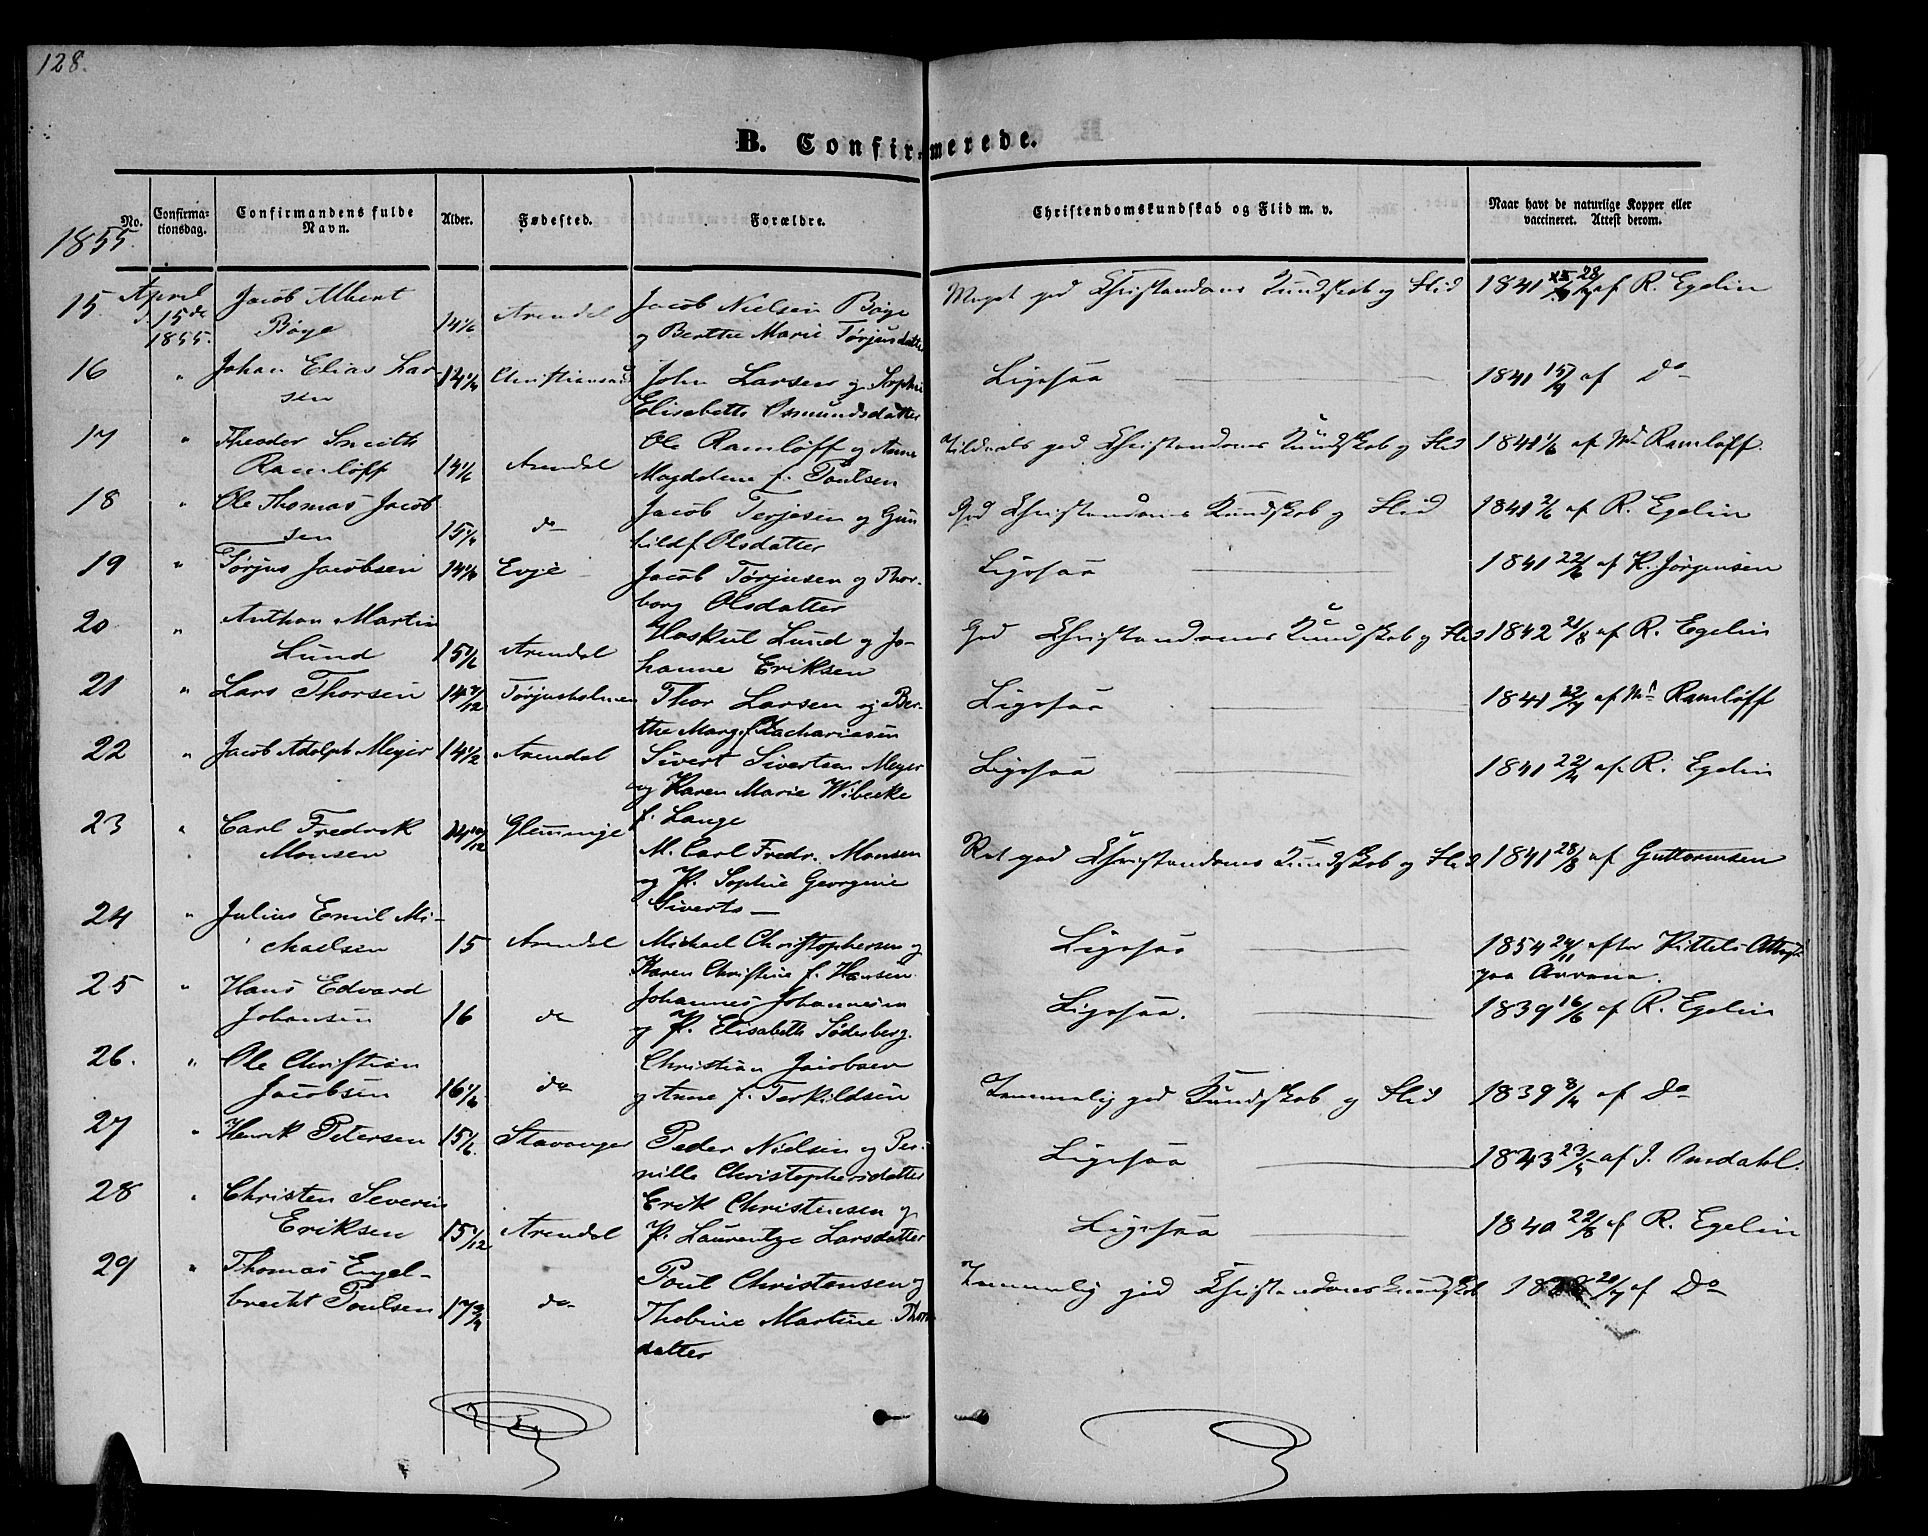 128.
B. Confirmerede.
No.
Confirma-
tionsdag.
Confirmandens fulde
Navn.
Alder.
Fødested.
Forældre.
Christendomskundskab og Flid m. v.
Naar havt de naturlige Kopper eller
vaccineret. Attest derom.
1855.
15. April 15de 1855. Jacob Albert
Bøge 14½ Arendal Jacob Nielsen Bøge
og Berthe Marie Tørjusdatter Meget god Christendoms Kundskab og Flid 1841 28/ af R. Egelin
16 " Johan Elias Lar-
sen 14¼ Christianssand John Larsen og Sophie
Elisabeth Osmundsdatter Ligesaa 1841 15/9 af Do
17 " Theodor Smith
Ramløff 14½ Arendal Ole Ramløff og Anne
Magdalene f. Poulsen Tildeels god Christendoms Kundskab og Flid 1841 1/6 af Md Ramløff.
18 " Ole Thomas Jacob
sen 15¼ do Jacob Terjesen og Gun
hild f. Olsdatter God Christendoms Kundskab og Flid 1841 af R. Egelin
19 " Tørjus Jacobsen Evje Jacob Tørjusen og Thor-
borg Olsdatter Ligesaa 1841 22/6 af K. Jørgensen
20 " Anthon Martin
Lund 15½ Arendal Haskul Lund og Jo-
hanne Eriksen God Christendoms Kundskab og Flid 1842 21/8 af R. Egelin
21 " Lars Thorsen Tørjusholmen Thor Larsen og Ber-
the Marg. f. Zachariasen Ligesaa 1841 22/7 af Md Ramløff
22 " Jacob Adolph Meyer 14½ Arendal Sivert Sivertsen Meyer
og Karen Marie Wibecke
f. Lange Ligesaa 1841 af R. Egelin
23 " Carl Fredrik
Monsen 14 10/12 Glemminge M. Carl Fredr. Monsen
og K. Sophie Georgine
Siverts — Ret god Christendoms Kundskab og Flid 1841 28/8 af Guttormsen
24 " Julius Emil Mi-
chaelsen 15 Arendal Michael Christophersen og
Karen Christine f. Hansen Ligesaa 1854 24/11 efter Kittels Attest
paa
25 " Hans Edvard
Johansen 16 do Johannes Johannesen
og K. Elisabeth Søderberg. Ligesaa. 1839 16/6 af R. Egelin
26. " Ole Christian
Jacobsen Christian Jacobsen
og Anne f. Terkildsen do Temmelig god Kundskab og Flid 1839 af Do
27 " Henrik Petersen Stavanger Peder Nielsen og Per-
nille Christophersdatter Ligesaa 1843 23/5 af J. Omdahl.
28 " Christen Severin
Eriksen Arendal Erik Christensen og
K. Laurentze Larsdatter Ligesaa 1840 22/8 af R. Egelin
29 " Thomas Engel-
brecht Poulsen 17¾ do Poul Christensen og
Thobine Martine Thors
datter Temmelig god Christendomskundskab 20/7 af Do